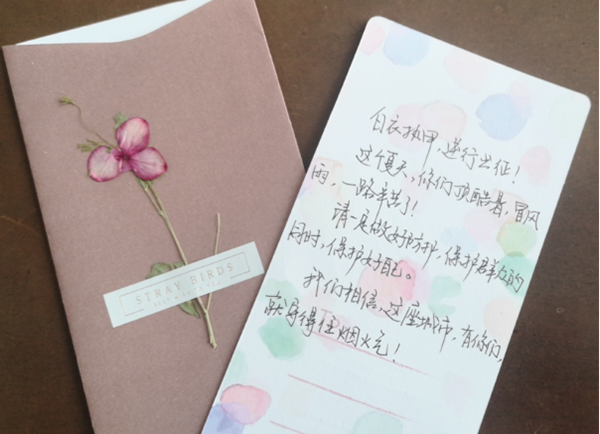 STRAY BIRDS
白衣执甲,逆行出征!
这个夏天,你们顶酷暑,冒风
雨,一路辛苦了!
请一定做好防护,保护群众的
同时,保护好自己。
我们相信,这座城市,有你们,
就守得住烟火气!